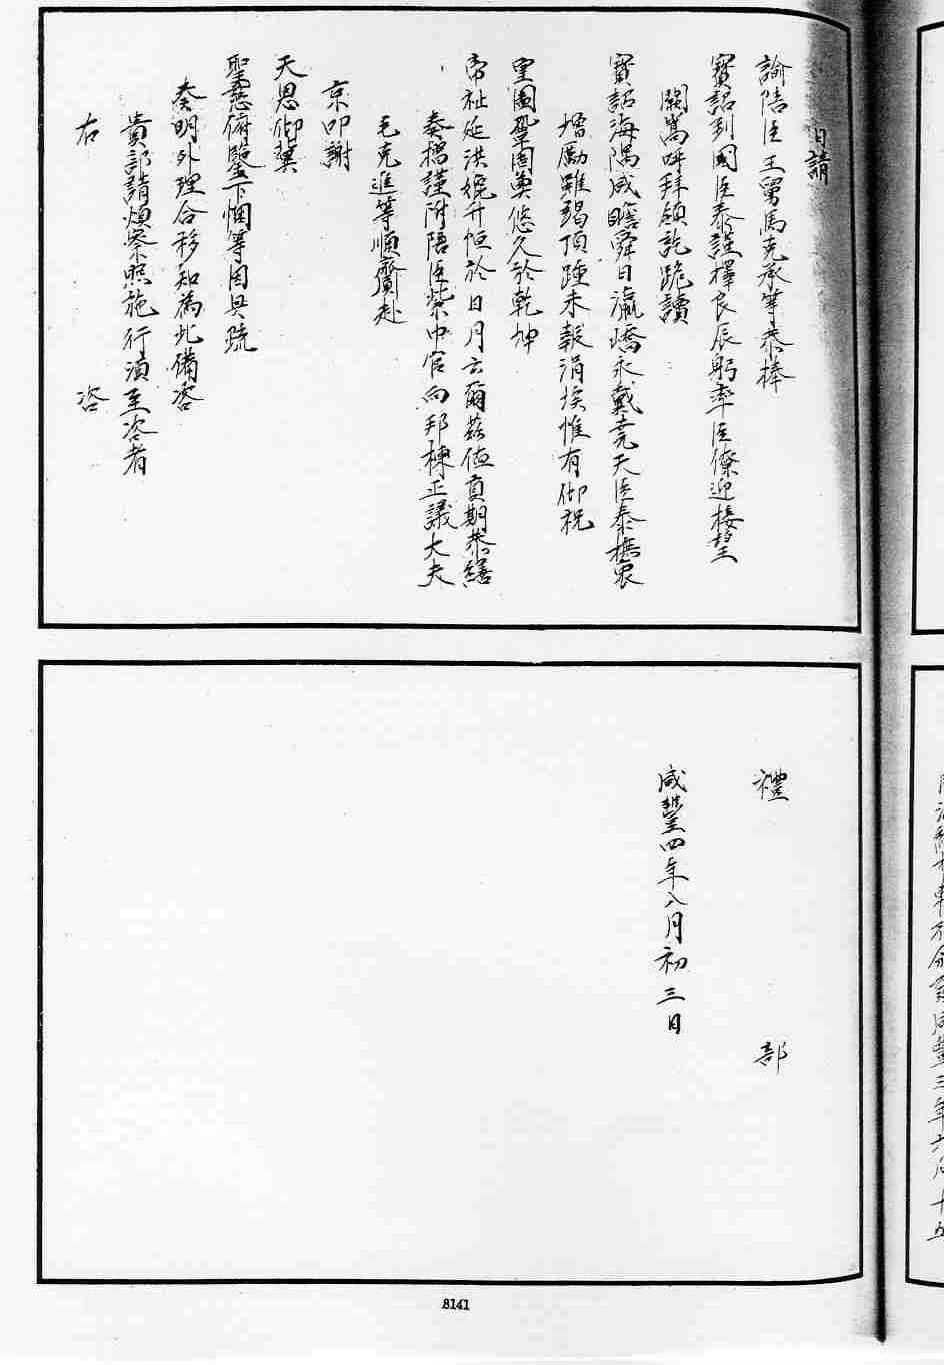 日請
諭陪臣王舅馬克承等恭捧
寶詔到國臣泰謹擇良辰躬率臣僚迎接望
闕嵩呼拜領訖跪讀
寶詔海隅咸瞻舜日瀛嶠永戴堯天臣泰撫衷
增勵雖竭頂踵未報涓埃惟有仰祝
皇圖鞏固奠悠久於乾坤
帝祉延洪媲升恒於日月云爾茲值貢期恭繕
奏摺謹附陪臣紫巾官向邦棟正議大夫
毛克進等順齎赴
京叩謝
天恩仰冀
聖慈俯鑒下悃等因具疏
奏明外理合移知為此備咨
貴部請煩察照施行須至咨者
右　咨
禮　部
咸豐四年八月初三日
年不
咸豐三年六月十五
8141